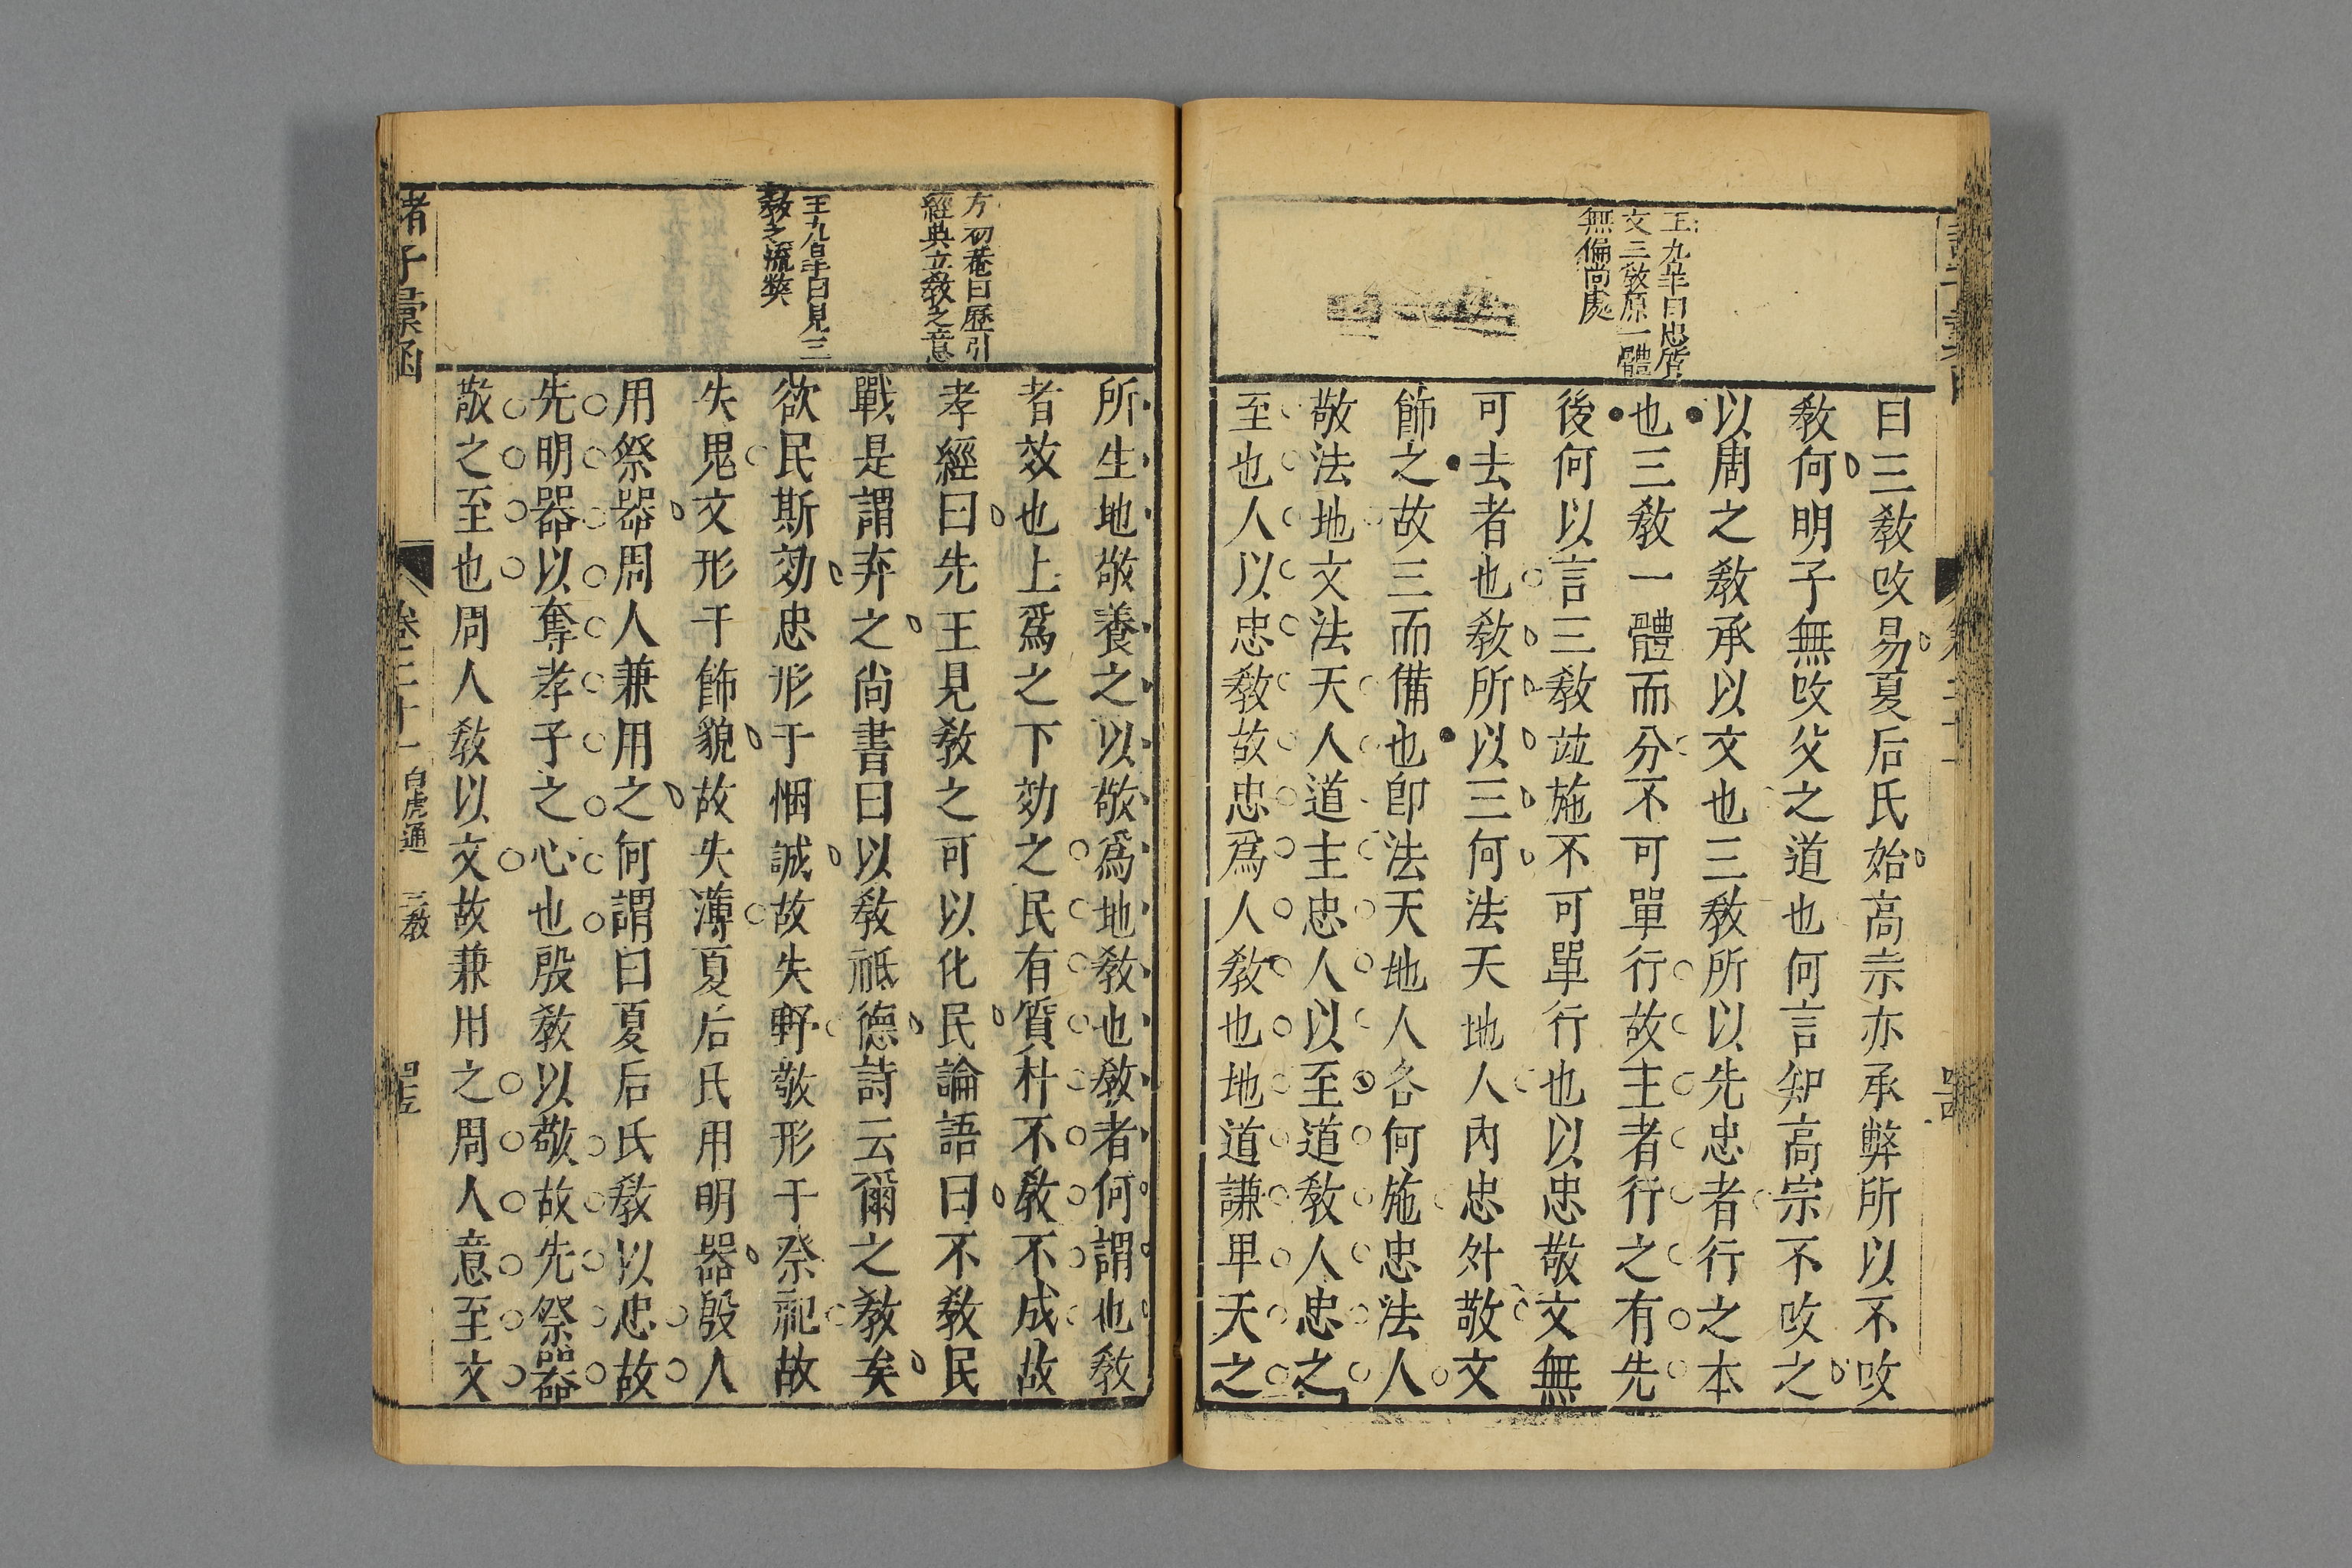 王九芊曰忠質
文三敎原一體
無偏尚處
曰三敎攺易夏后氏始高宗亦承弊所以不攺
敎何明子無攺父之道也何言知高宗不攺之
以周之敎承以文也三敎所以先忠者行之本
也三敎一體而分不可單行故主者行之有先
後何以言三敎竝施不可單行也以忠敬文無
可去者也敎所以三何法天地人内忠外敬文
飾之故三而備也卽法天地人各何施忠法人
敬法地文法天人道主忠人以至道敎人忠之
至也人以忠敎故忠爲人敎也地道謙卑天之
方初菴曰歷引
經典立敎之意
王九芊曰見三
敎之流獘
所生地敬養之以敬爲地敎也敎者何謂也敎
者效也上爲之下効之民有質朴不敎不成故
孝經曰先王見敎之可以化民論語曰不敎民
戰是謂弃之尙書曰以敎祗德詩云爾之敎矣
欲民斯効忠形于悃誠故失野敬形于祭祀故
失鬼文形于飾貌故失薄夏后氏用明器殷人
用祭器周人兼用之何謂曰夏后氏敎以忠故
先明器以奪孝子之心也殷敎以敬故先祭器
敬之至也周人敎以文故兼用之周人意至文
諸子彙函
卷二十一 白虎通 三敎